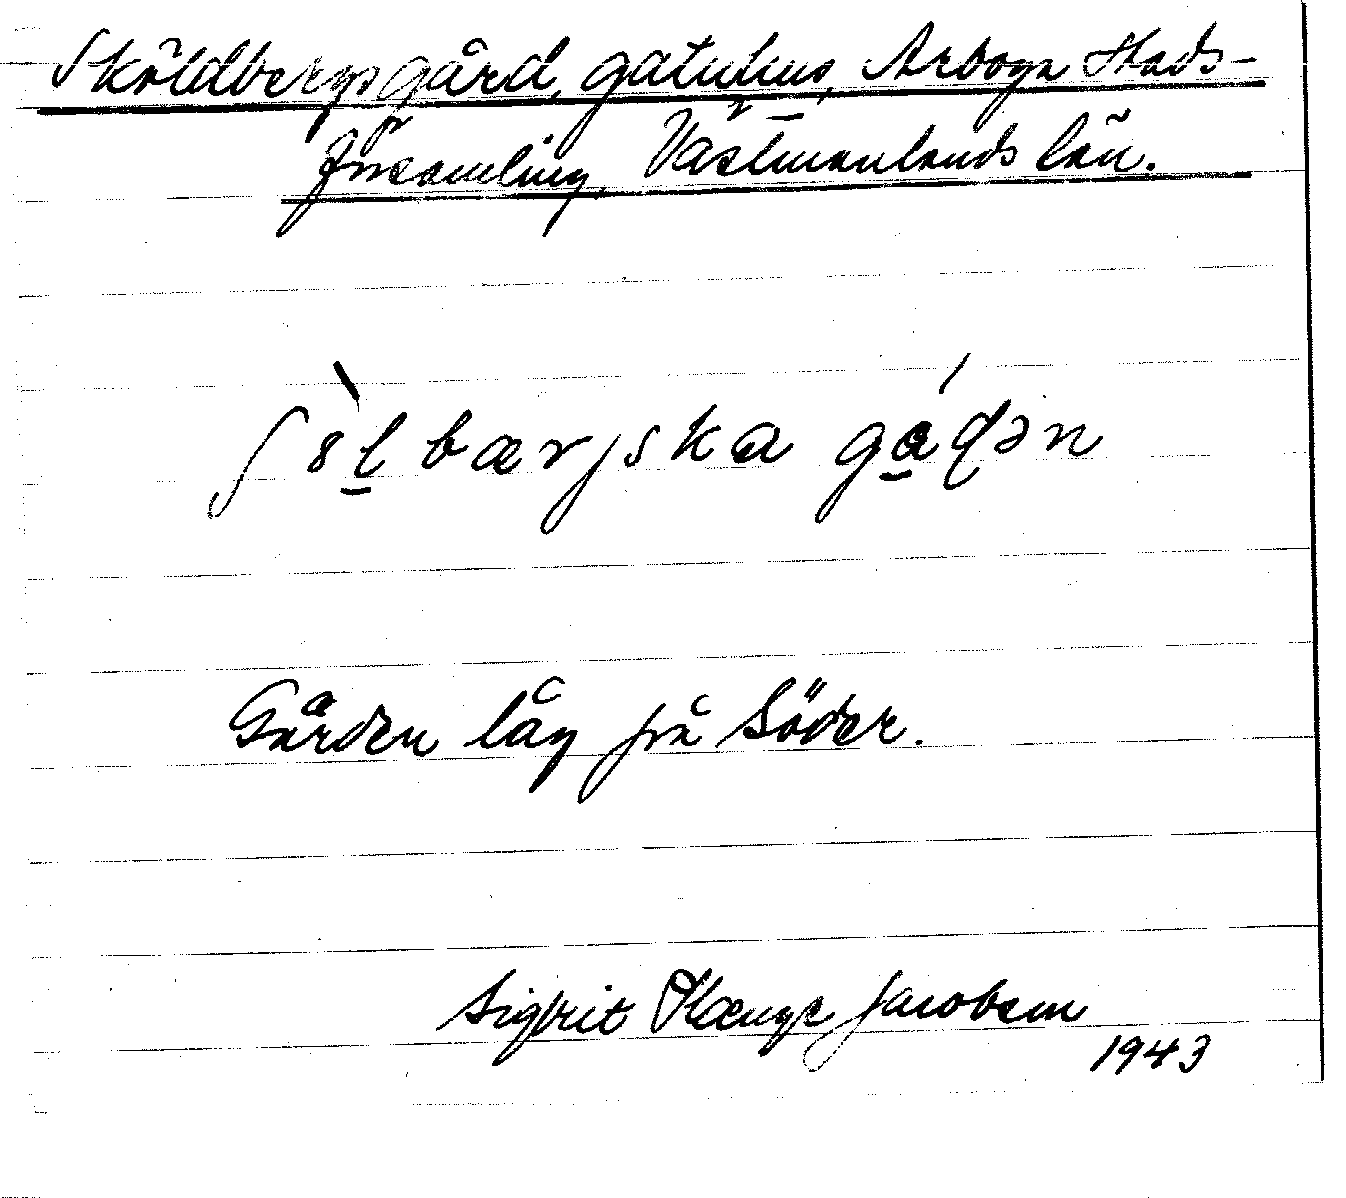 Sköldbergsgård, gatuhus, Arboga Stads-
församling, Västmanlands län.
ʃöl bærjska gaɖən
Gården låg på Söder.
Sigfrit Jacobsen
1943